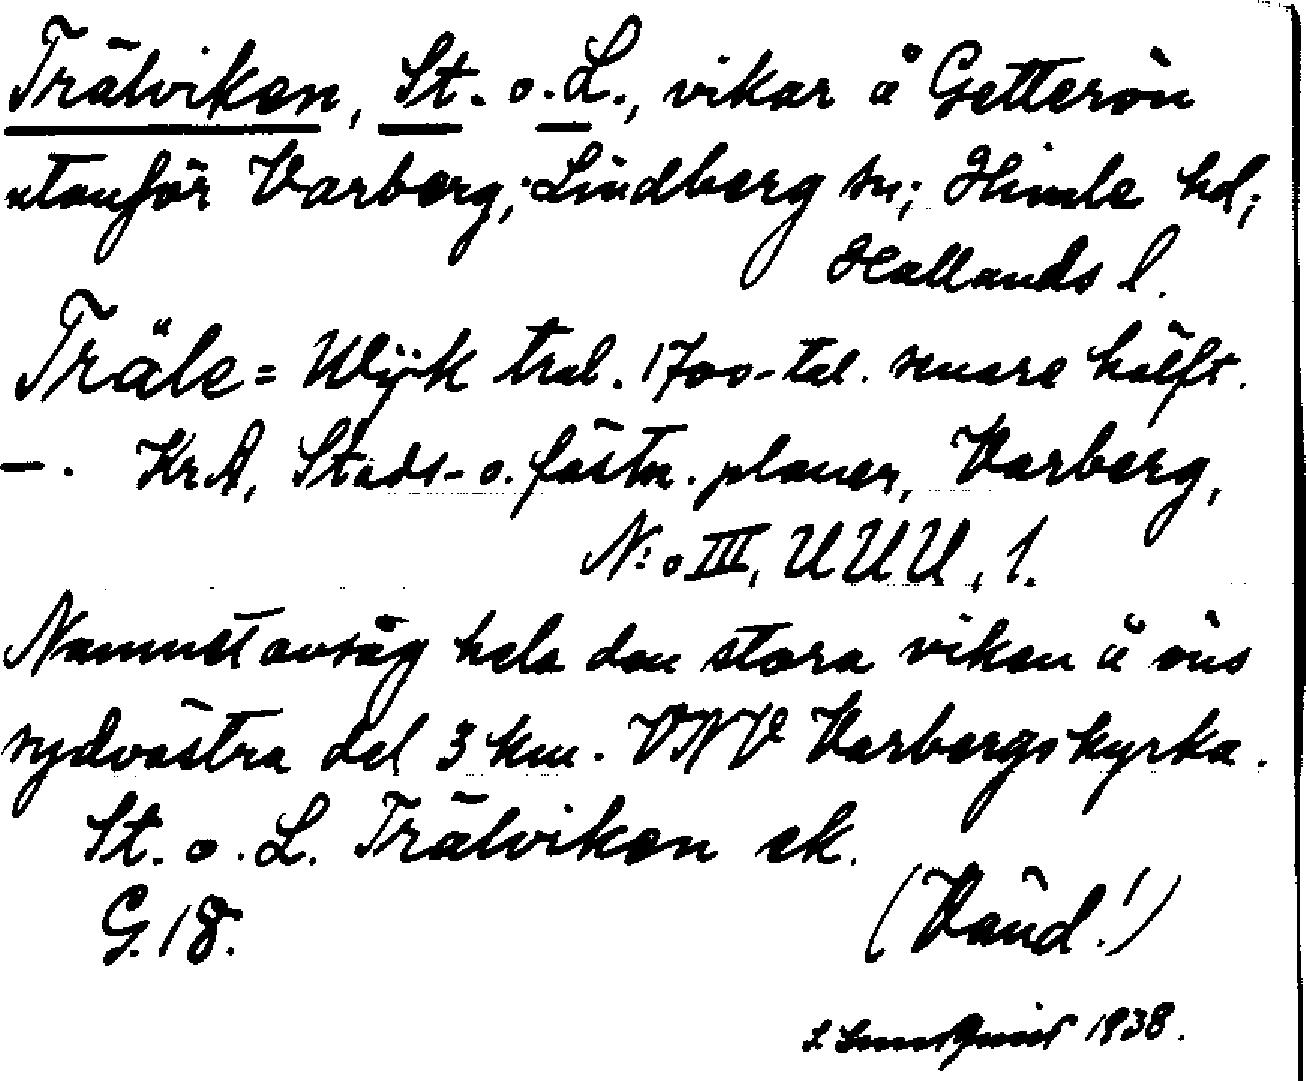 Trälviken, St. o. L., vikar å Getterön
utanför Varberg; Lindberg sn; Himle hd;
Hallands l.
Träle = Wijk tral. 1700-tal. senare hälft.
–. KrA, Stads- o. fästn. planer, Varberg,
N:o III, UUU, 1.
Namnet avsåg hela den stora viken å öns
sydvästra del 3 km. VNV Varbergs kyrka.
St. o. L. Trälviken ek.
G. 18.
(Vänd!)
1938.